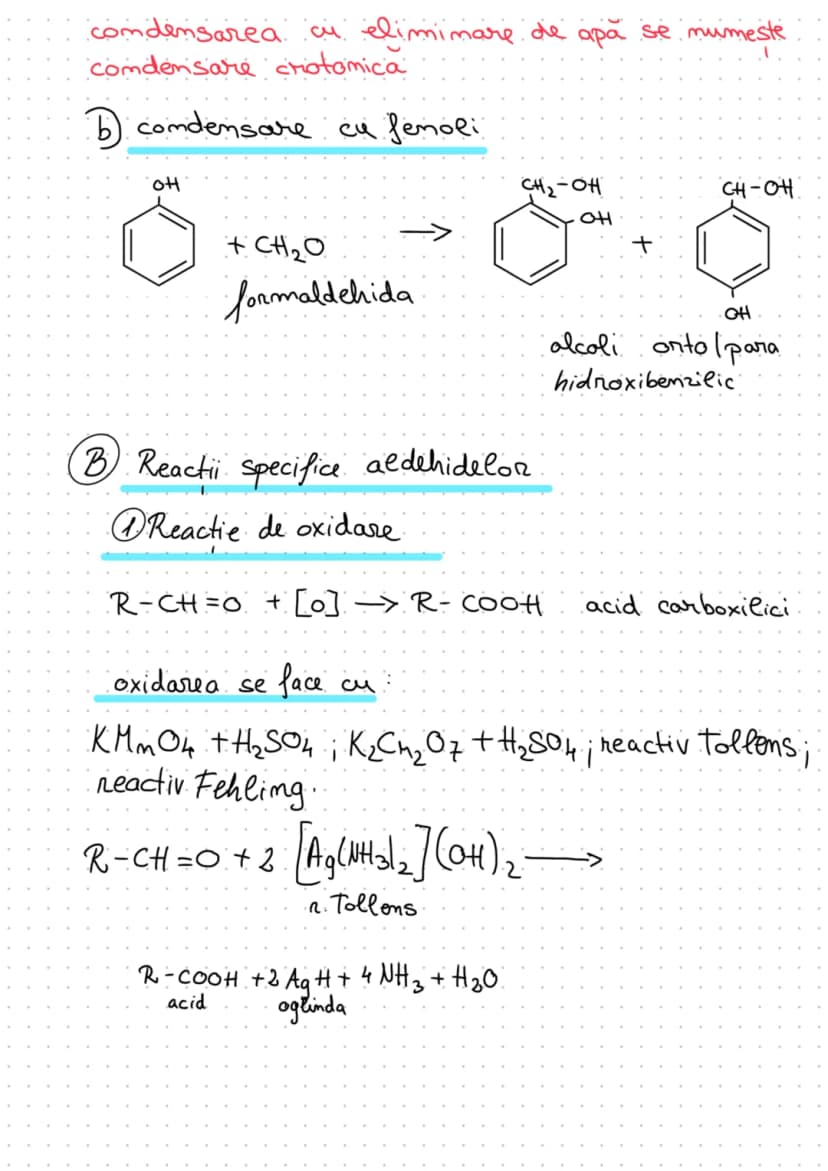 comdensarea cu elimimare de apă se mumește
comdensare crotomică
b) comdensare cu femoli
OH
CH₂-OH
CH-OH
OH
+ CH₂O
→
+
formaldehida
OH
alcoli orto/para
hidroxibemzilic
B) Reactii specifice aldehidelor
1. Reactie de oxidare
R-CH=O + [O] → R-COOH acid carboxilici
oxidarea se face cu:
KMmO4 + H₂SO4; K₂Cr₂O7 + H₂SO4; reactiv Tollems;
reactiv Fehlimg.
R-CH=O + 2 [Ag(NH3)₂](OH)₂ →
r. Tollems
R-COOH + 2 Ag H + 4 NH3 + H₂O
acid oglinda